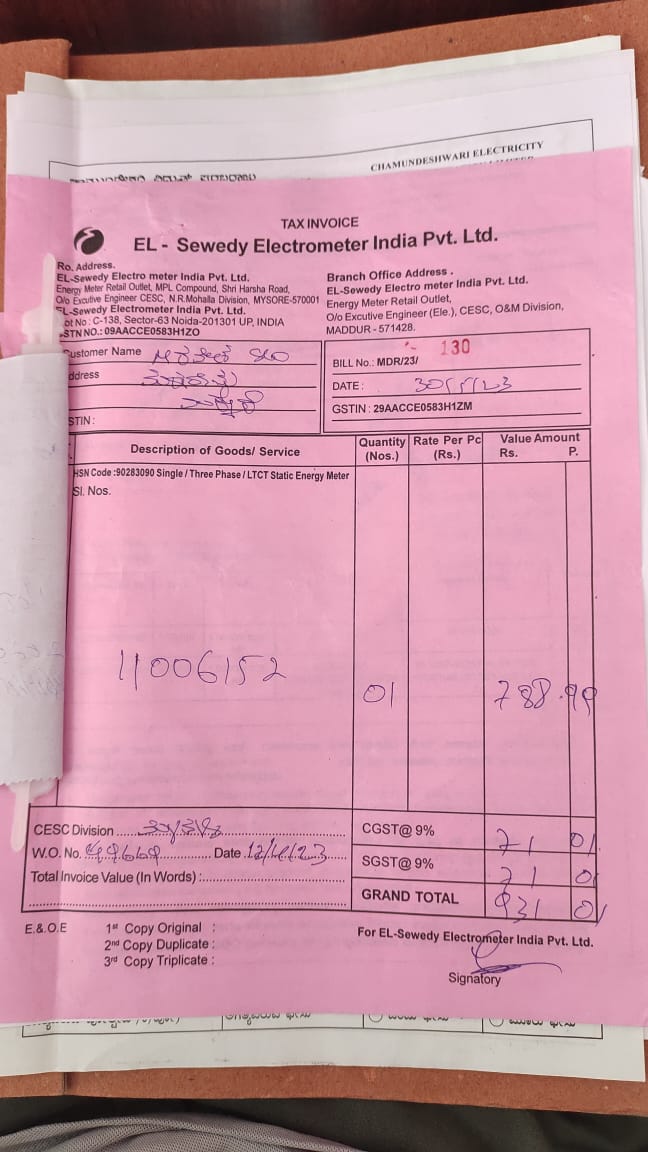 CHAMUNDESHWARI ELECTRICITY
TAX INVOICE
EL - Sewedy Electrometer India Pvt. Ltd.
Ro. Address.
EL-Sewedy Electro meter India Pvt. Ltd.
Energy Meter Retail Outlet, MPL Compound, Shri Harsha Road,
O/o Excutive Engineer CESC, N.R.Mohalla Division, MYSORE-570001
EL-Sewedy Electrometer India Pvt. Ltd.
ot No: C-138, Sector-63 Noida-201301 UP, INDIA
STN NO.: 09AACCE0583H1ZO
Branch Office Address .
EL-Sewedy Electro meter India Pvt. Ltd.
Energy Meter Retail Outlet,
O/o Excutive Engineer (Ele.), CESC, O&M Division,
MADDUR - 571428.
ustomer Name
ddress
STIN :
BILL No.: MDR/23/ 130
DATE : 30/5/23
GSTIN : 29AACCE0583H1ZM
Description of Goods/ Service
Quantity (Nos.)
Rate Per Pc (Rs.)
Value Amount Rs. P.
HSN Code :90283090 Single / Three Phase / LTCT Static Energy Meter
Sl. Nos.
11006152 01 788.99
CESC Division
W.O. No. Date 12/4/23
Total Invoice Value (In Words) :
CGST@ 9% 71 01
SGST@ 9% 71 01
GRAND TOTAL 931 01
E.& O.E
1st Copy Original :
2nd Copy Duplicate :
3rd Copy Triplicate :
For EL-Sewedy Electrometer India Pvt. Ltd.
Signatory